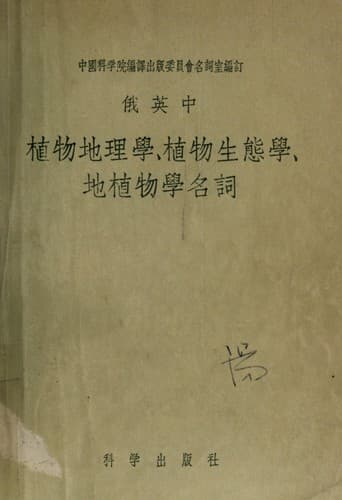 中國科学院編譯出版委員會名詞室編訂
俄英中
植物地理學、植物生態學、
地植物學名詞
科学出版社